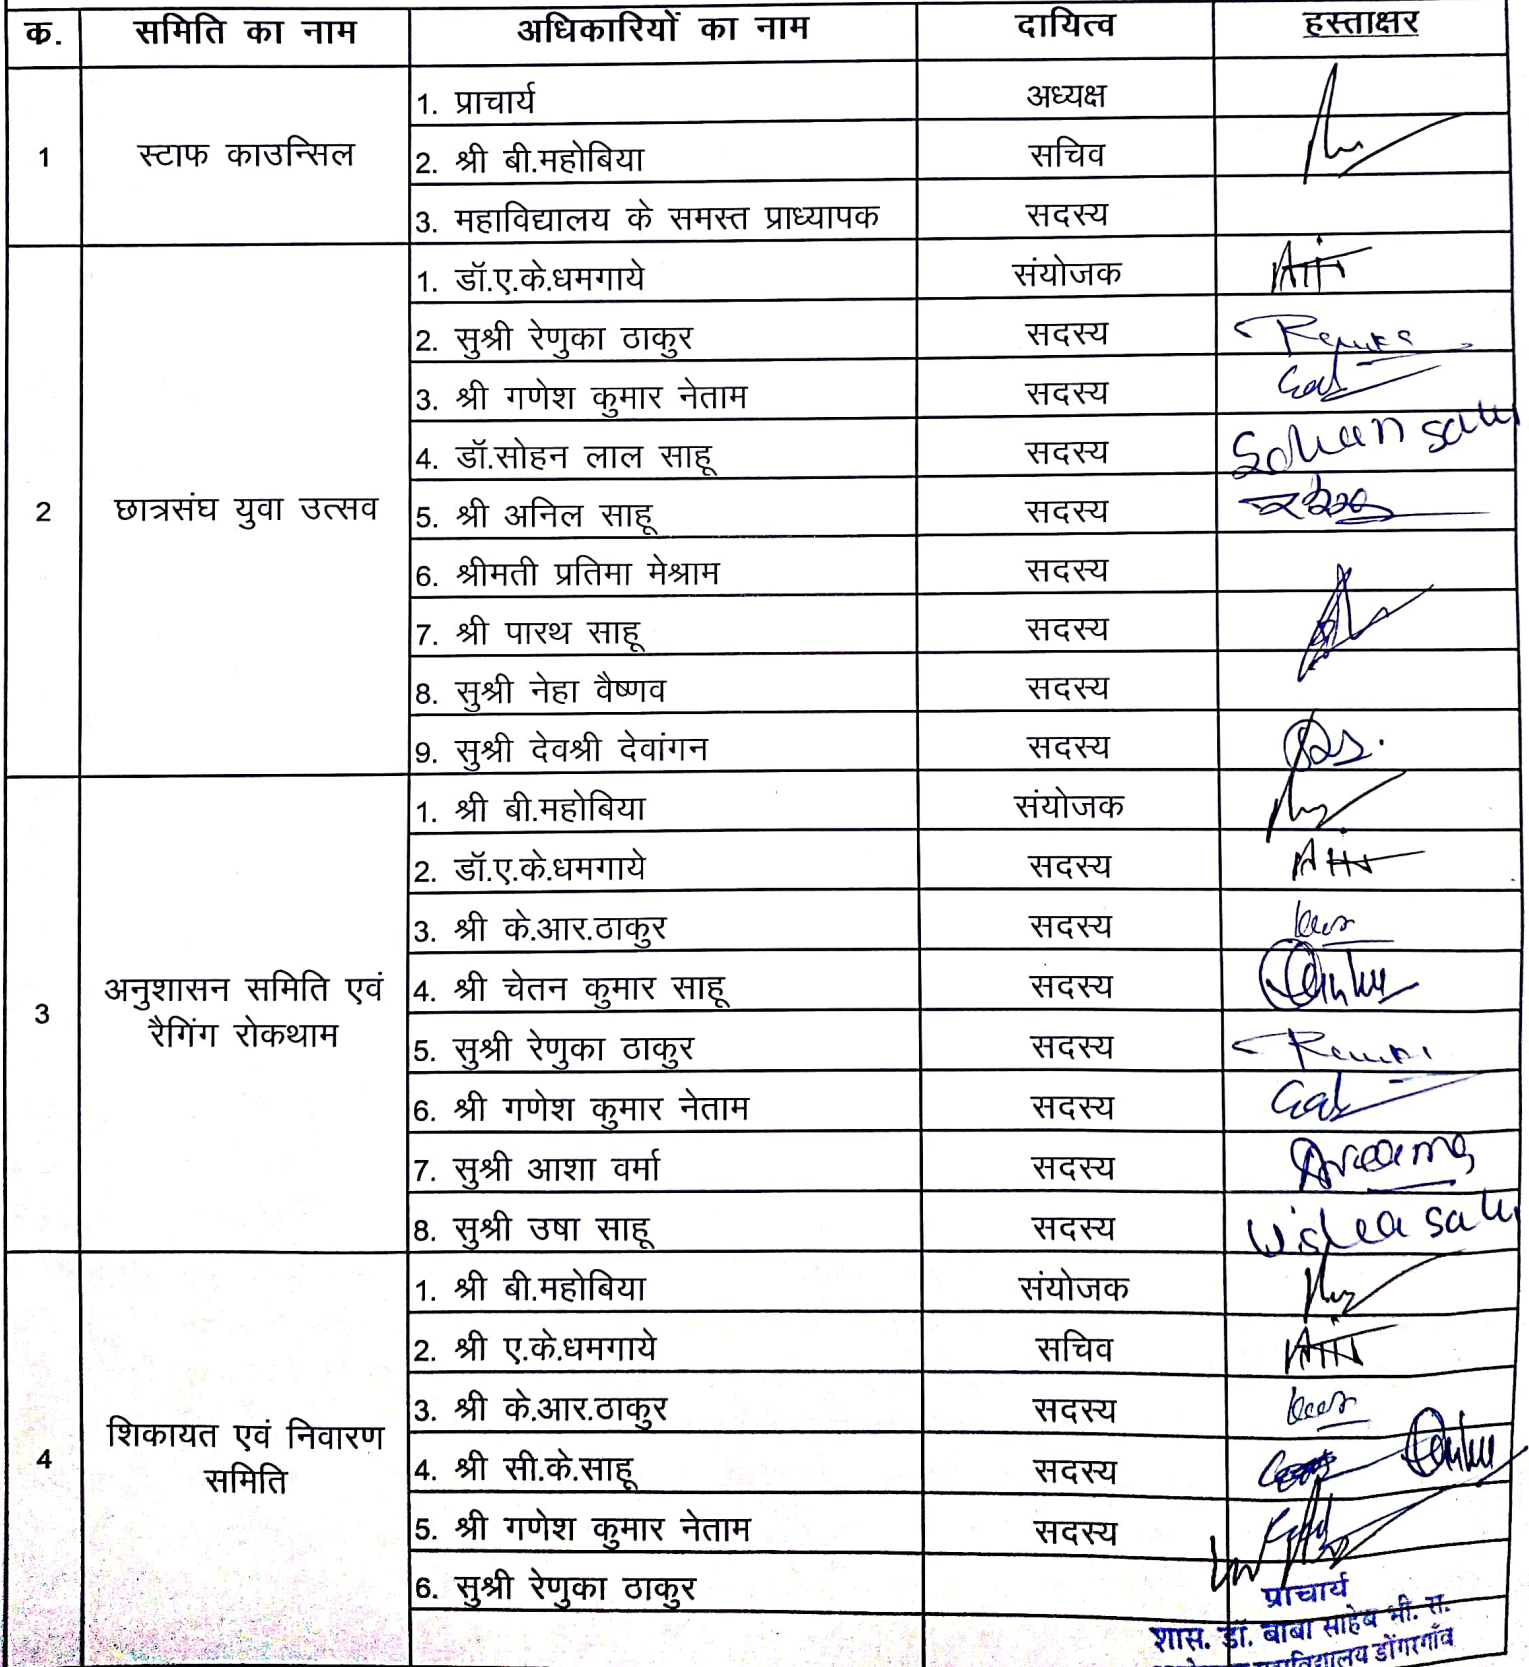 क. समिति का नाम अधिकारियों का नाम दायित्व हस्ताक्षर
1 स्टाफ काउन्सिल
1. प्राचार्य अध्यक्ष
2. श्री बी.महोबिया सचिव
3. महाविद्यालय के समस्त प्राध्यापक सदस्य
2 छात्रसंघ युवा उत्सव
1. डॉ.ए.के.धमगाये संयोजक
2. सुश्री रेणुका ठाकुर सदस्य
3. श्री गणेश कुमार नेताम सदस्य
4. डॉ.सोहन लाल साहू सदस्य
5. श्री अनिल साहू सदस्य
6. श्रीमती प्रतिमा मेश्राम सदस्य
7. श्री पारथ साहू सदस्य
8. सुश्री नेहा वैष्णव सदस्य
9. सुश्री देवश्री देवांगन सदस्य
3 अनुशासन समिति एवं
रैगिंग रोकथाम
1. श्री बी.महोबिया संयोजक
2. डॉ.ए.के.धमगाये सदस्य
3. श्री के.आर.ठाकुर सदस्य
4. श्री चेतन कुमार साहू सदस्य
5. सुश्री रेणुका ठाकुर सदस्य
6. श्री गणेश कुमार नेताम सदस्य
7. सुश्री आशा वर्मा सदस्य
8. सुश्री उषा साहू सदस्य
4 शिकायत एवं निवारण
समिति
1. श्री बी.महोबिया संयोजक
2. श्री ए.के.धमगाये सचिव
3. श्री के.आर.ठाकुर सदस्य
4. श्री सी.के.साहू सदस्य
5. श्री गणेश कुमार नेताम सदस्य
6. सुश्री रेणुका ठाकुर
प्राचार्य
शास. डॉ. बाबा साहेब भी. रा.
महाविद्यालय डोंगरगाँव